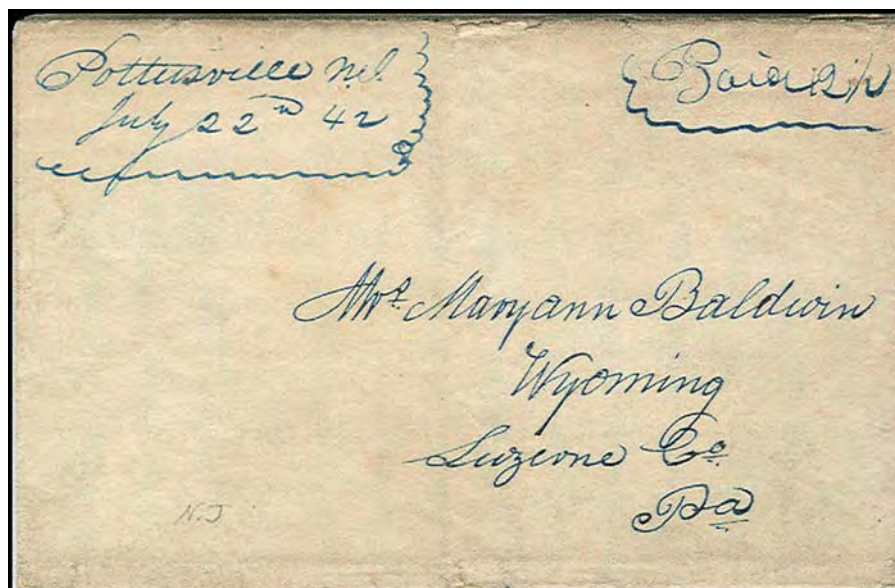 Pottersville
July 22nd 42
Paid 12½
Mrs Maryann Baldwin
Wyoming
Luzerne Co.
Pa
N.J